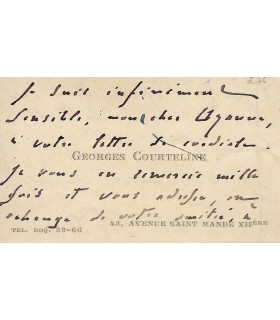 Je suis infiniment
sensible, mon cher
à votre lettre de cordiale.
GEORGES COURTELINE
Je vous en remercie mille
fois et vous adresse, en
échange de votre amitié,
43, AVENUE SAINT MANDÉ XIIÈME
TEL. ROQ. 39-66